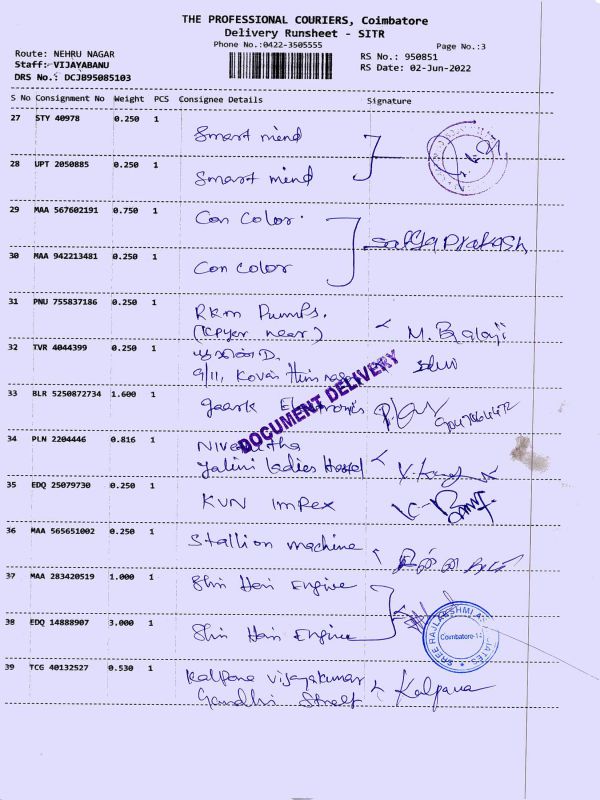 THE PROFESSIONAL COURIERS, Coimbatore
Delivery Runsheet - SITR
Phone No.:0422-3505555
Page No.:3
Route: NEHRU NAGAR
RS No.: 950851
Staff: VIJAYABANU
RS Date: 02-Jun-2022
DRS No.: DCJB95085103
S No Consignment No Weight PCS Consignee Details Signature
27 STY 40978 0.250 1
Smart mind
28 UPT 2050885 0.250 1
Smart mind
29 MAA 567602191 0.750 1
Con Color.
Sathya Prakash
30 MAA 942213481 0.250 1
Con color
31 PNU 755837186 0.250 1
RKM Pumps.
(near)
M. Balaji
32 TVR 4044399 0.250 1
9/11, Kovai
33 BLR 5250872734 1.600 1
Electronics
DOCUMENT DELIVERY
34 PLN 2204446 0.816 1
Nivedutha
Yalini Ladies Hostel
35 EDQ 25079730 0.250 1
KVN Impex
36 MAA 565651002 0.250 1
Stallion machine
37 MAA 283420519 1.000 1
Shin Hein Engine
38 EDQ 14888907 3.000 1
Shin Hein Engine
Coimbatore-14
39 TCG 40132527 0.530 1
Kalpana Vijayakumar
Kalpana
Gandhi Street